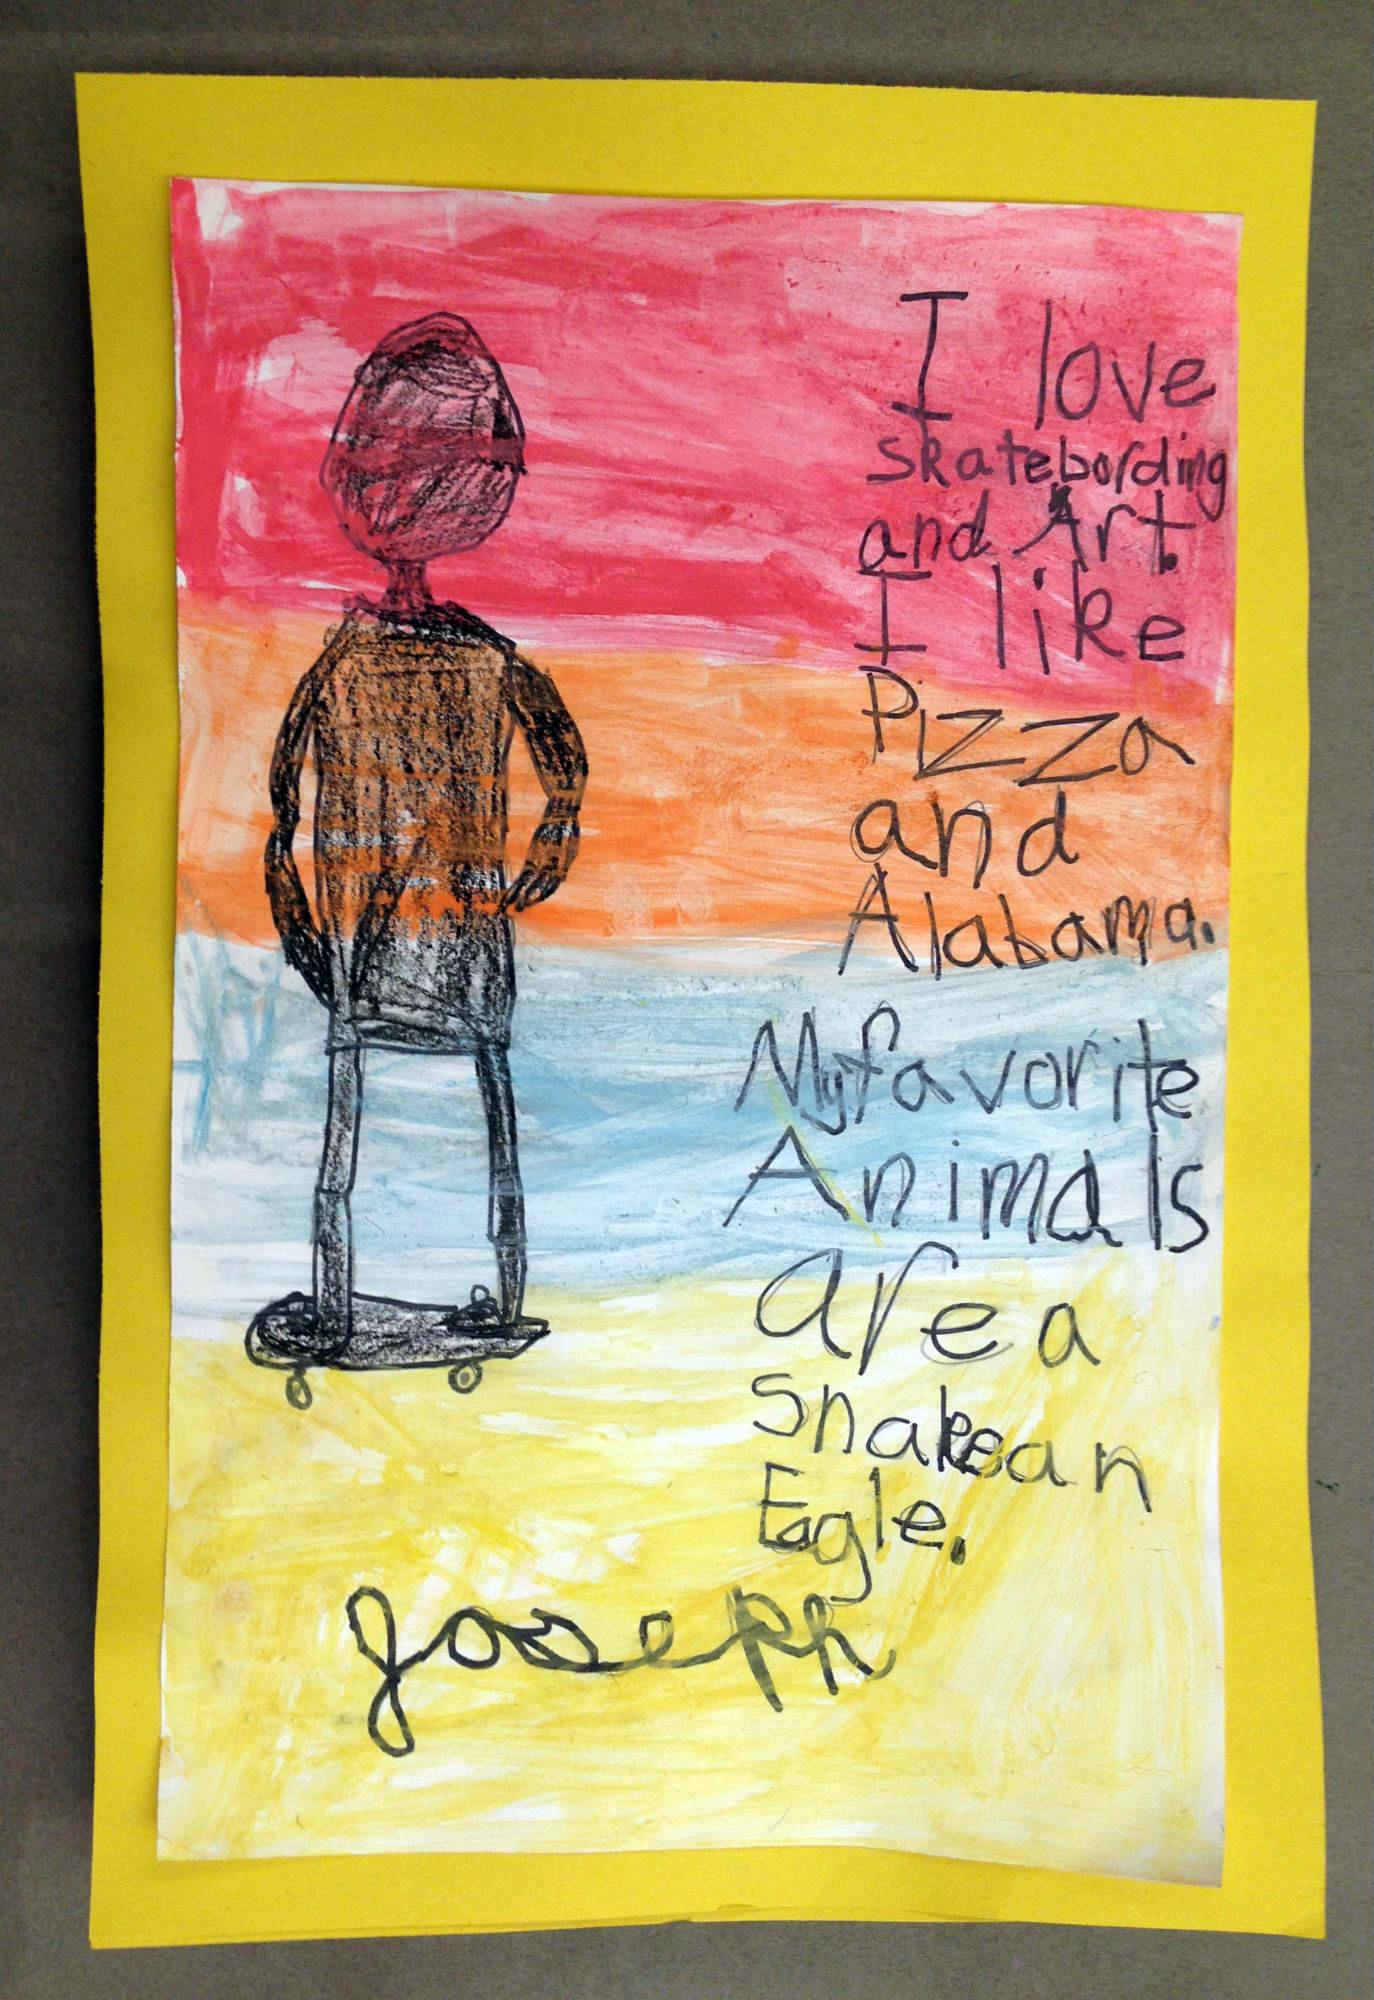 I love
skatebording
and Art.
I like
Pizza
and
Alabama.
My favorite
Animals
are a
Snake an
Eagle.
Joseph